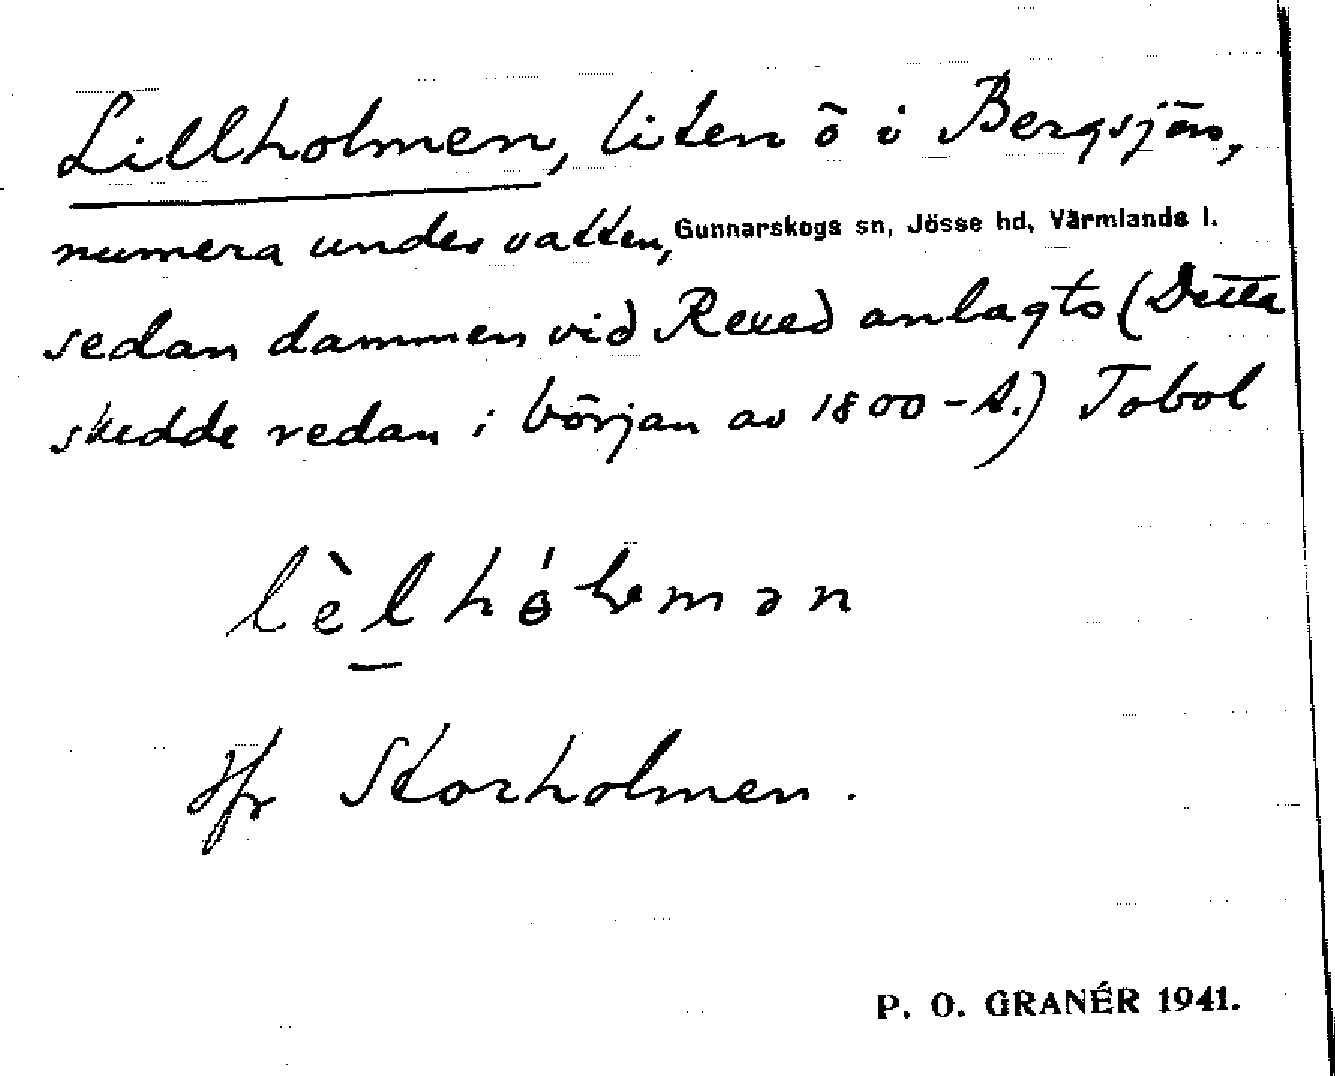 Lillholmen, liten ö i Bergsjön,
numera under vatten, Gunnarskogs sn, Jösse hd, Värmlands l.
sedan dammen vid Reued anlagts (Detta
skedde redan i början av 1800-t.) Tobol
Jfr Storholmen.
P. O. GRANÉR 1941.